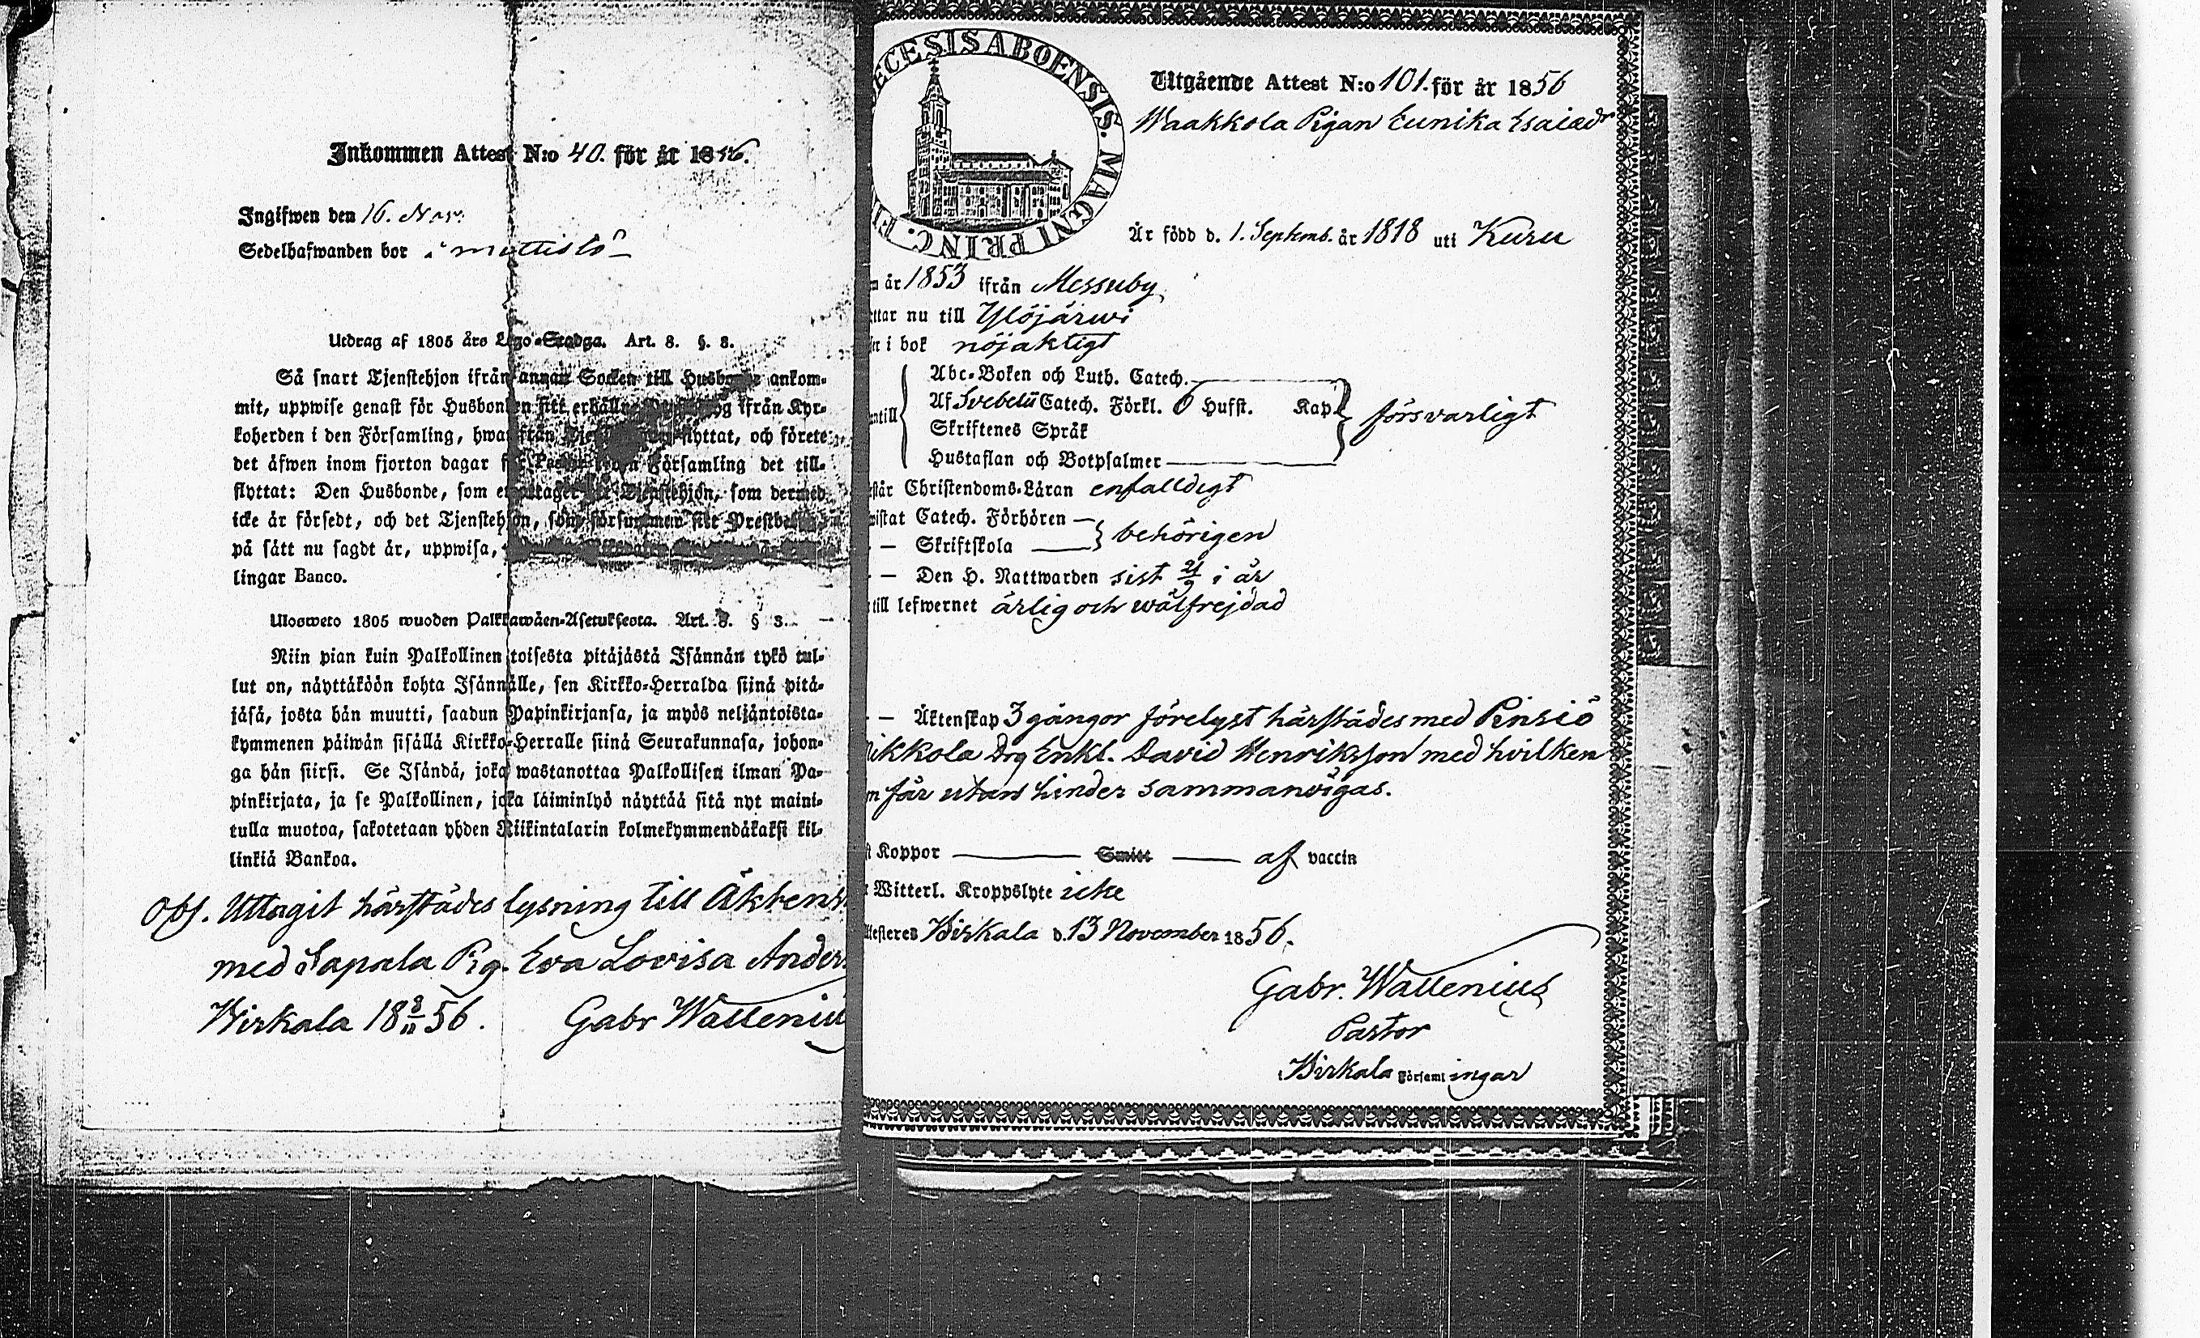 Inkommen Attest N:o 40. för år 1856.
Ingifwen den 16. Nov.
Sedelhafwanden bor i
Utdrag af 1805 års Lego-Stadga. Art. 8. §. 3.
Så snart Tjenstehjon ifrån annan Socken till Husbonde ankom-
mit, uppwise genast för Husbonden sitt erhållne ifrån Kyr-
koherden i den Församling, hwarifrån flyttat, och förete
det äfwen inom fjorton dagar Församling det till-
flyttat: Den Husbonde, som emottager Tjenstehjon, som dermed
icke är försedt, och det Tjenstehjon, som försummer sitt
på sätt nu sagdt är, uppwisa,
lingar Banco.
Ulosweto 1805 wuoden Palkkawäen-Asetuksesta. Art. 8. § 3.
Niin pian kuin Palkollinen toisesta pitäjästä Isännän tykö tul-
lut on, näyttäköön kohta Isännälle, sen Kirkko-Herralda siinä pitä-
jäsä, josta hän muutti, saadun Papinkirjansa, ja myös neljäntoista-
kymmenen päiwän sisällä Kirkko-Herralle siinä Seurakunnasa, johon-
ga hän siirsi. Se Isändä, joka wastanottaa Palkollisen ilman Pa-
pinkirjata, ja se Palkollinen, joka läiminlyö näyttää sitä nyt maini-
tulla muotoa, sakotetaan yhden Riikintalarin kolmekymmendäkaksi kil-
linkiä Bankoa.
Obs. Uttagit härstädes lysning till Äktensk
med Sapala Pig. Eva Lovisa Anders
Birkala 18 8/11 56. Gabr Walleniu
ECESIS ABOENSIS. MAGNI PRINC. FI
Utgående Attest N:o 101. för år 1856
Waakkola Pigan Eunika Esaiædr
Är född d. 1. Septemb. år 1818 uti Kuru
n år 1853 ifrån Messuby
ttar nu till Ylöjärwi
i bok nöjaktigt
Abc-Boken och Luth. Catech.
ntill Af Svebelii Catech. Förkl. O Hufst. Kap. försvarligt
Skriftenes Språk
Hustaflan och Botpsalmer
står Christendoms-Läran enfalldigt
wistat Catech. Förhören
— Skriftskola behörigen
— — Den H. Nattwarden sist 21/9 i år
till lefwernet ärlig och wälfrejdad
— Äktenskap 3 gångor förelyst härstädes med Pinsiö
Mikkola Drg Enkl. David Henriksson med hvilken
n får utan hinder sammanvigas.
Koppor — Smitt — af vaccin
Witterl. Kroppslyte icke
ttesteres Birkala d. 13 November 1856.
Gabr. Wallenius
Pastor
i Birkala Förseml ingar